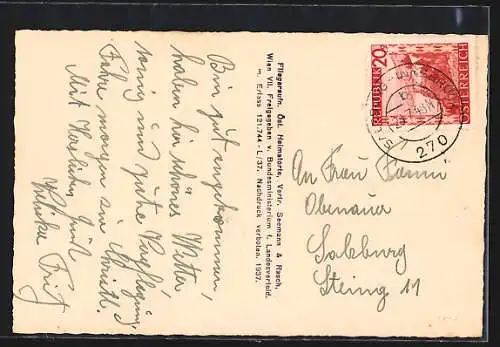 Bin gut angekommen,
haben hier schönes Wetter
sonnig und gute Verpflegung,
Fahre morgen in
Mit Herzlichen Gruß
Fritz
Fliegeraufn. Öst. Heimatorte, Vertr. Seemann & Rasch,
Wien VII. Freigegeben v. Bundesministerium f. Landesverteid.
m. Erlass 121.744-L/37. Nachdruck verboten. 1937.
REPUBLIK 20
ÖSTERREICH
270
An Frau
Obenauer
Salzburg
Steing. 11